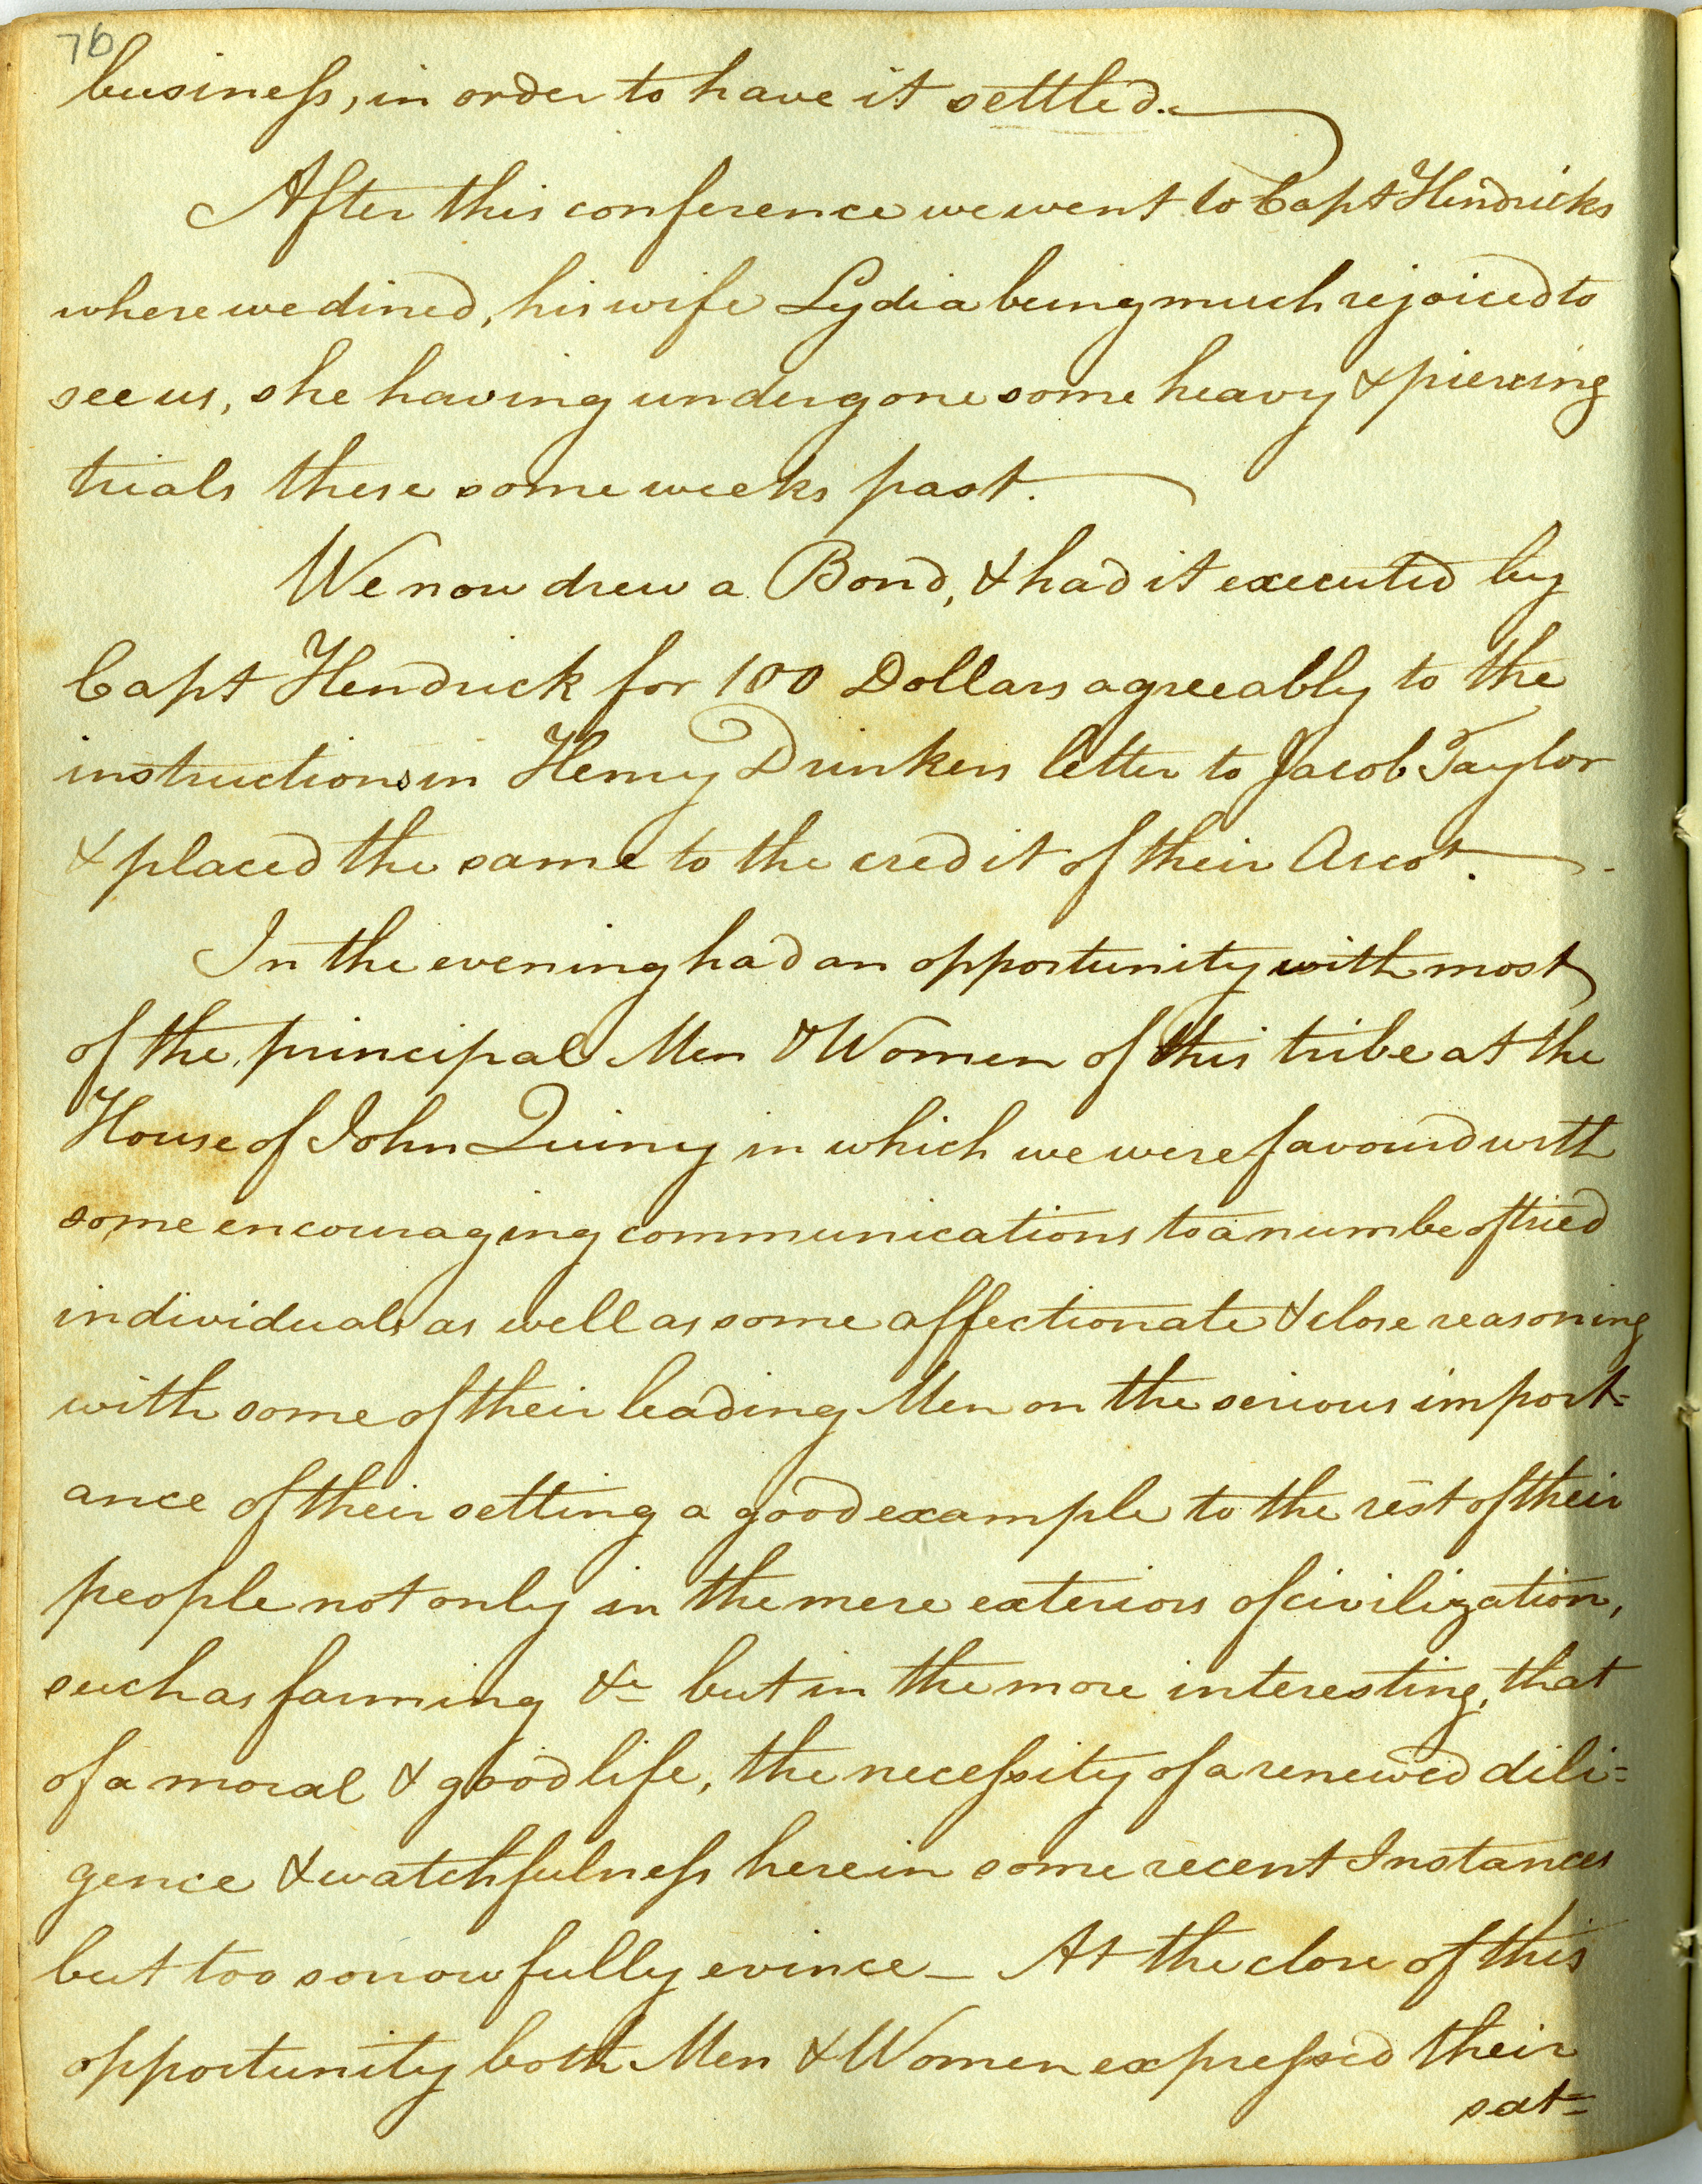 76
business, in order to have it settled.
After this conference we went to Capt Hendricks
where we dined, his wife Lydia being much rejoiced to
see us, she having undergone some heavy & piercing
trials these some weeks past.
We now drew a Bond, & had it executed by
Capt Hendrick for 100 Dollars agreeably to the
instructions in Henry Drinkers letter to Jacob Taylor
& placed the same to the credit of their Accot.
In the evening had an opportunity with most
of the principal Men & Women of this tribe at the
House of John Quiny in which we were favourd with
some encouraging communications to a numbe of tried
individuals as well as some affectionate & close reasoning
with some of their leading Men on the serious import=
ance of their setting a good example to the rest of their
people not only in the mere exteriors of civilization,
such as farming &c but in the more interesting, that
of a moral & good life, the necessity of a renewed dili=
gence & watchfulness herein some recent Instances
but too sorrowfully evince _ At the close of this
opportunity both Men & Women expressed their
sat=